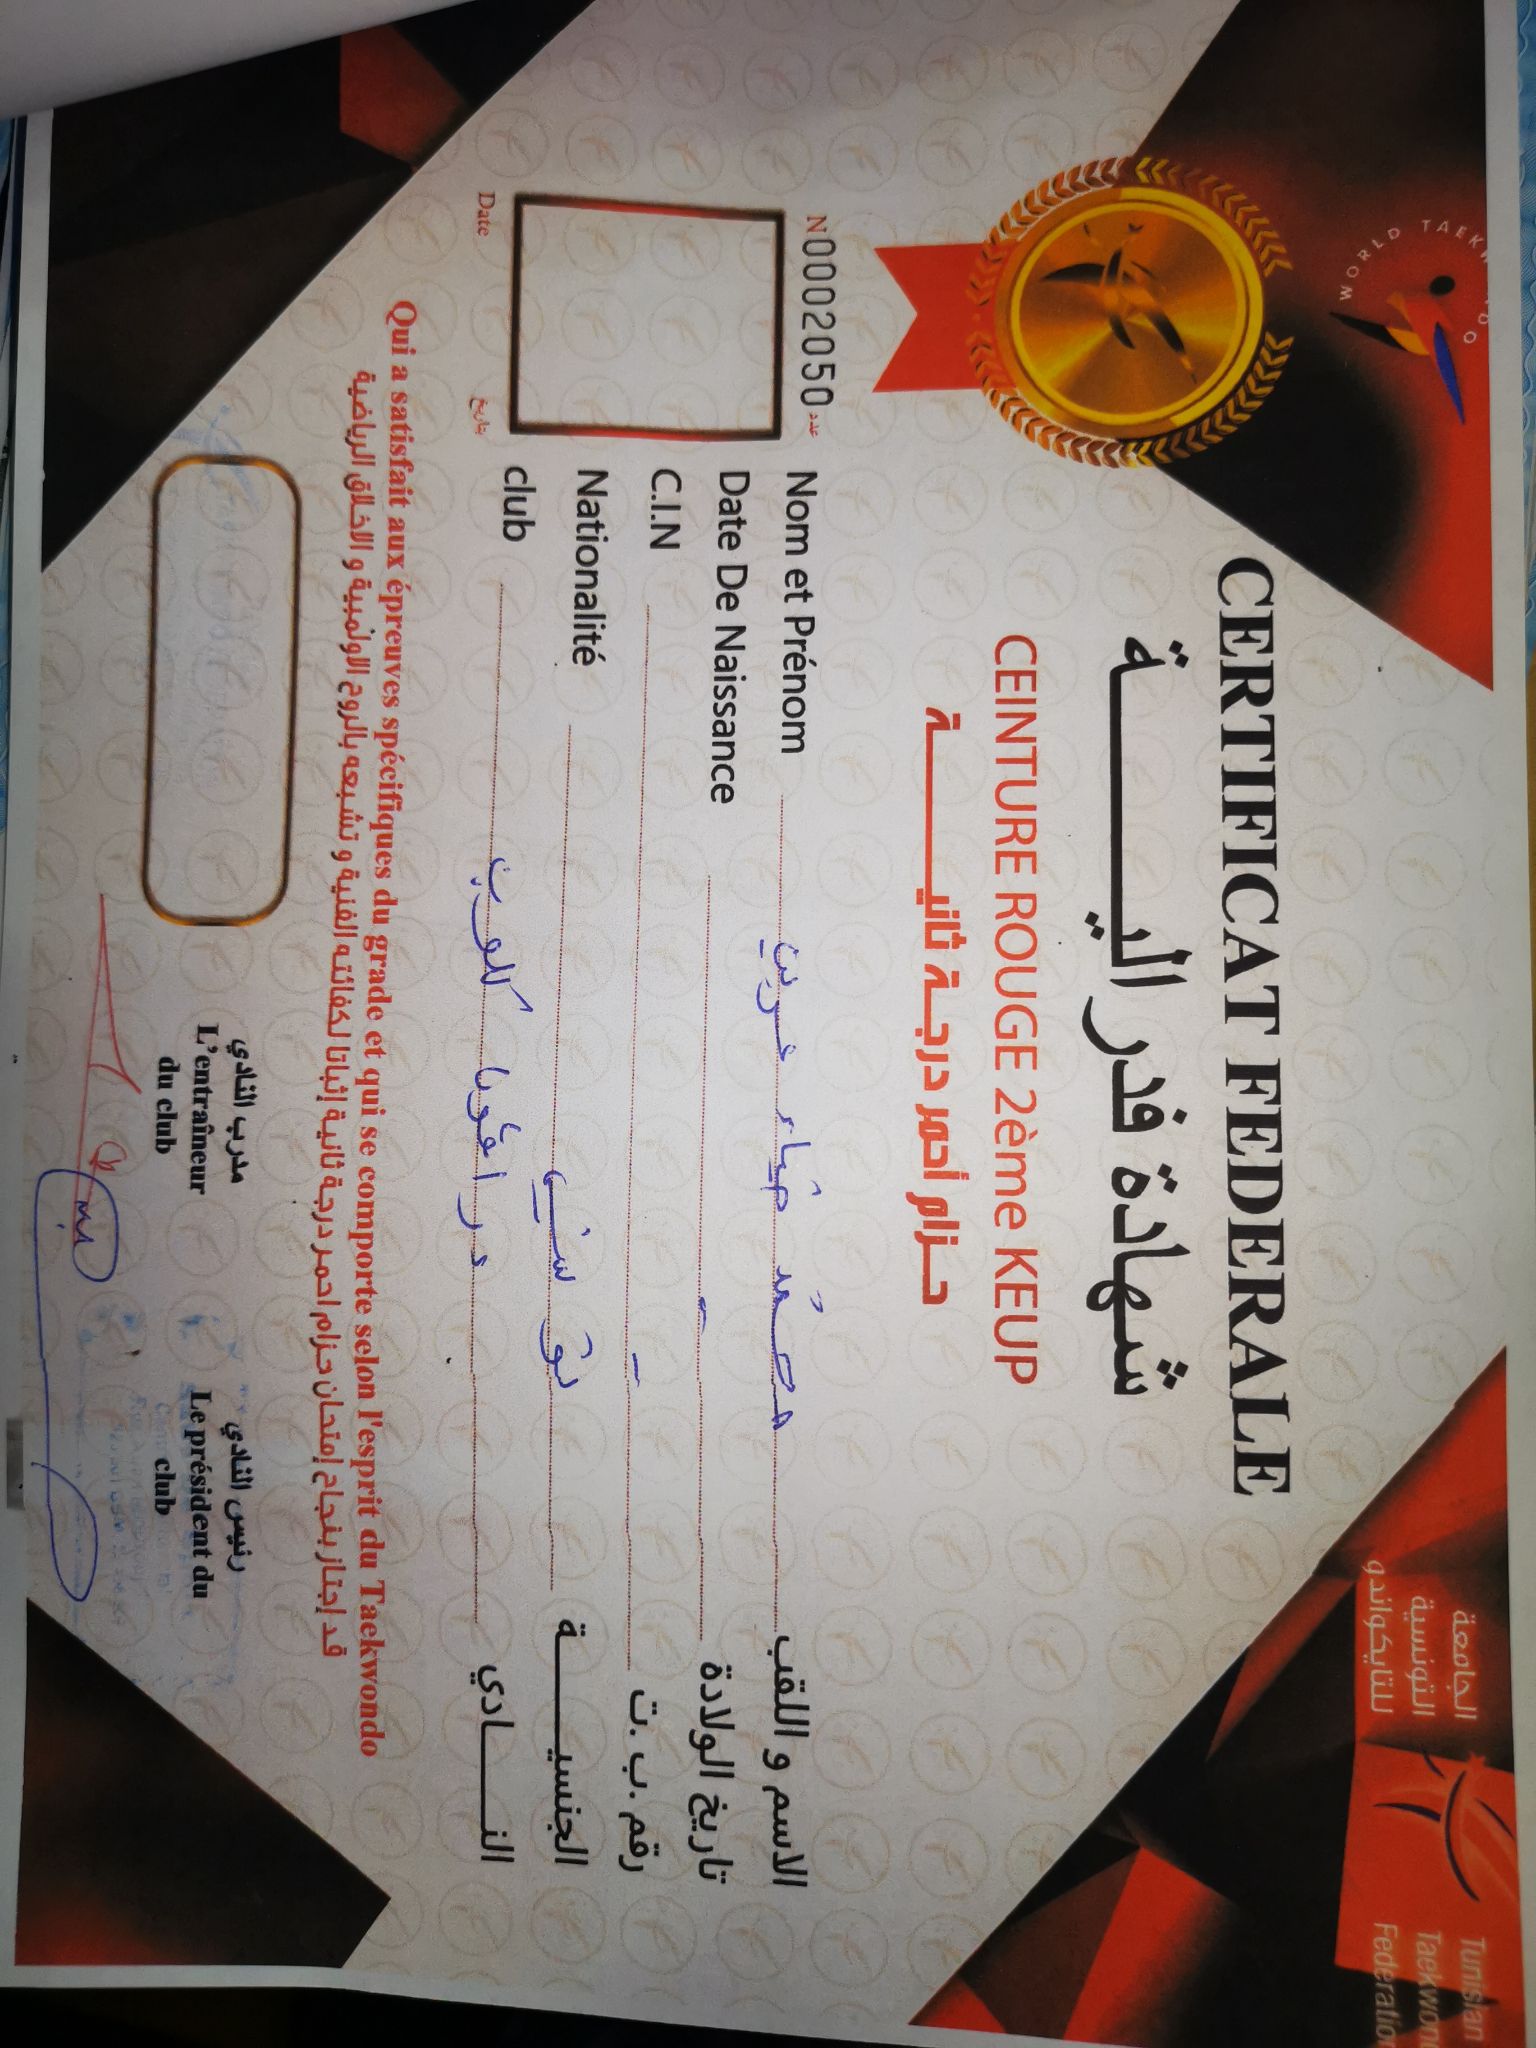 WORLD TAEKWONDO
الجامعة
التونسية
للتايكواندو
Tunisian
Taekwon
Federation
CERTIFICAT FEDERALE
شهادة فدرالية
CEINTURE ROUGE 2ème KEUP
حزام أحمر درجة ثانية
N 0002050 عدد
Nom et Prénom محمد ضياء غريب الاسم و اللقب
Date De Naissance - تاريخ الولادة
C.I.N - رقم .ب .ت
Nationalité تونسي الجنسية
club دراقون كلوب النادي
Date تاريخ
Qui a satisfait aux épreuves spécifiques du grade et qui se comporte selon l'esprit du Taekwondo
قد إجتاز بنجاح إمتحان حزام احمر درجة ثانية إثباتا لكفائته الفنية و تشبعه بالروح الاولمبية و الاخلاق الرياضية
مدرب النادي
L'entraîneur
du club
رئيس النادي
Le président du
club